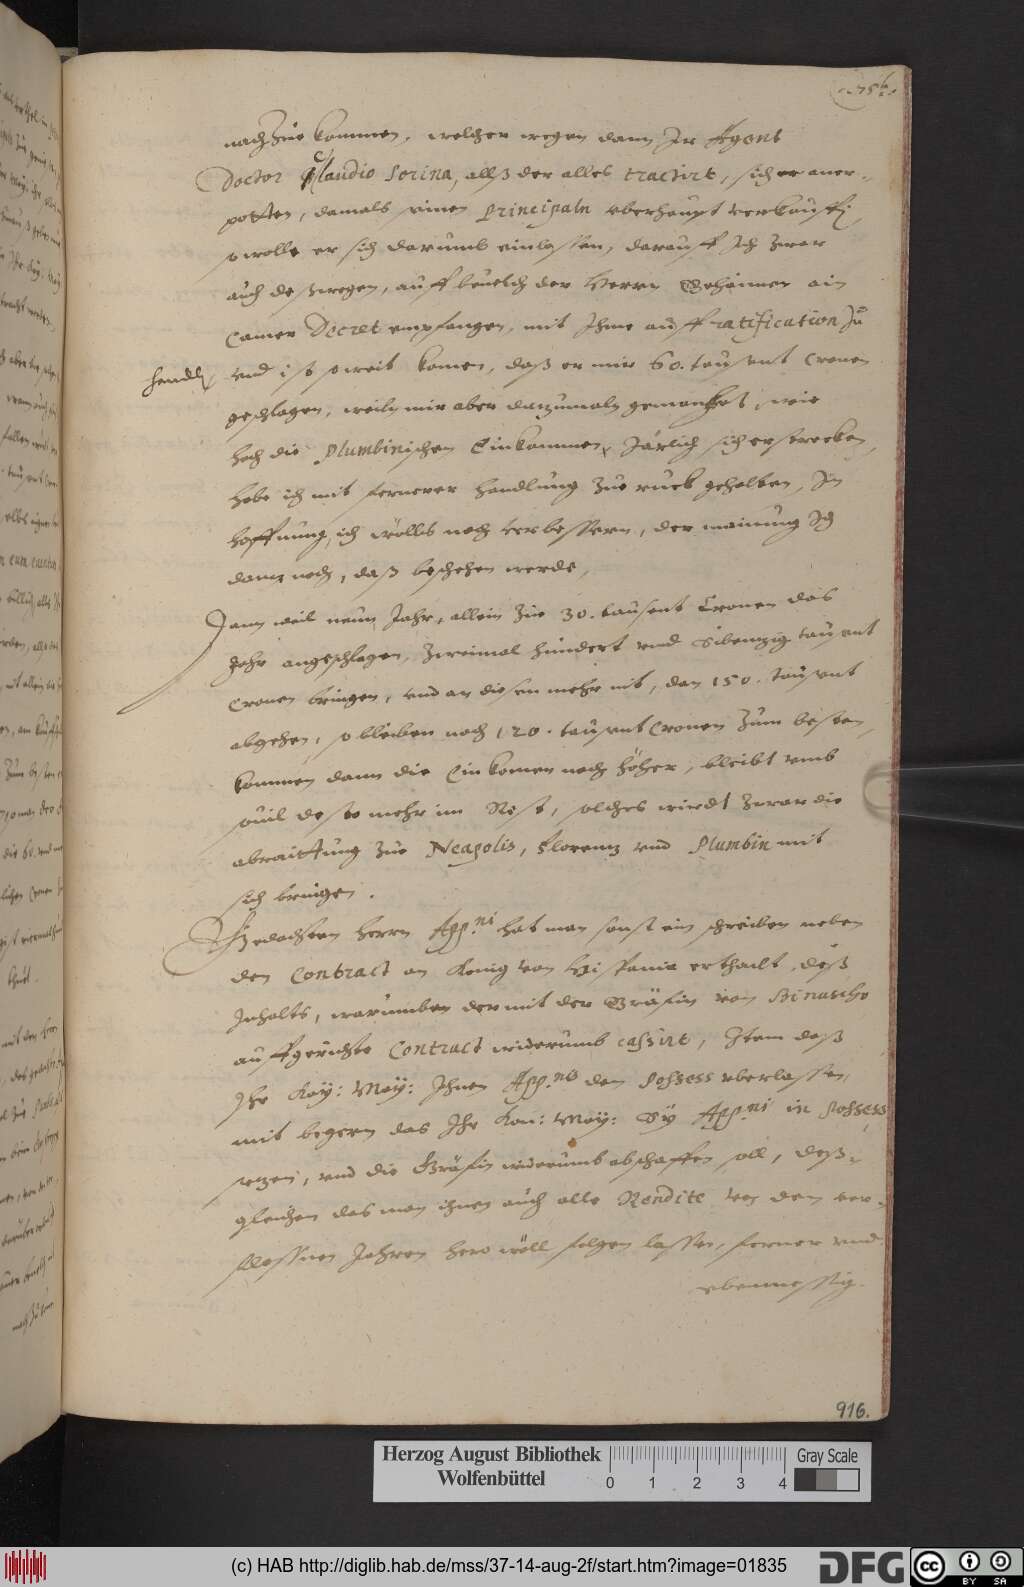 nachzue kommen, welcher wegen dann Ir Agent
Doctor Claudio Sorina, alß der alles tractirt, sich er aner-
potten, damals einen Principaln vberhaupt verkauffen
wolle er sich darumb einlassen, darauff Ich zwar
auch deßwegen, auff beuelch der Herrn Gehaimen ain
Camer Decret empfangen, mit Ihme auff ratification Zu
handlen
vnd ist so weit komen, daß er mir 60. tausent Cronen
geschlagen, weiln mir aber dazumaln gemanglet, wie
hoch die Plumbinischen Einkommen, Järlich sich erstrecken,
habe ich mit ferner handlung zue ruck gehalten, In
hoffnung, ich wölls noch verbessern, der mainung Ich
dann noch, daß beschehen werde,
Dann weil neun Jahr, allein zue 30. tausent Cronen das
Jahr angeschlagen, zweimal hundert vnd Sibenzig tausent
Cronen bringen, vnd an disen mehr nit, dan 150. tausent
abgehen, so bleiben noch 120. tausent Cronen zum besten,
kommen dann die Einkomen noch höher, bleibt vmb
souil desto mehr im Rest, solches wirdt zwar die
abraittung zue Neapolis, Florenz vnd Plumbin mit
sich bringen.
Gedachten Herrn App.ni hat man sonst ein schreiben neben
den Contract an König von Hispania erthailt, deß
Inhalts, warumben der mit der Gräfin von Binascho
auffgerichte Contract widerumb cassirt, Item daß
Ihr Kay: May: Ihnen App.nis den Possess vberlassen,
mit begern das Ihr Kön: May: Sy App.ni in Possess
sezen, vnd die Gräfin widerumb abschaffen soll, deß-
gleichen das man ihnen auch alle Rendite von den ver-
flossnen Jahren hero wöll folgen lassen, ferner vnd
ebenmessig
916.
Herzog August Bibliothek
Wolfenbüttel
0 1 2 3 4
Gray Scale
(c) HAB http://diglib.hab.de/mss/37-14-aug-2f/start.htm?image=01835
DFG
cc BY SA